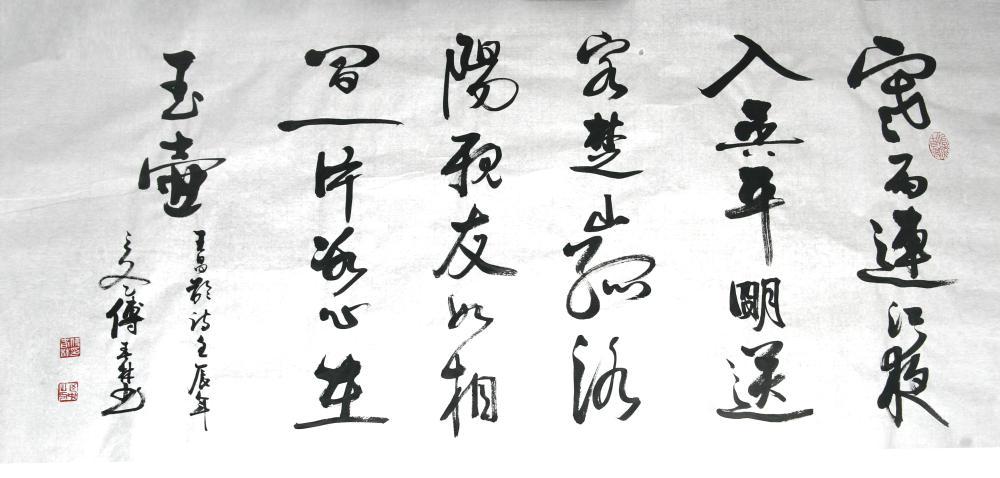 寒雨連江夜
入吳平明送
客楚山孤洛
陽親友如相
問一片冰心在
玉壺
王昌齡詩壬辰年
之傅書